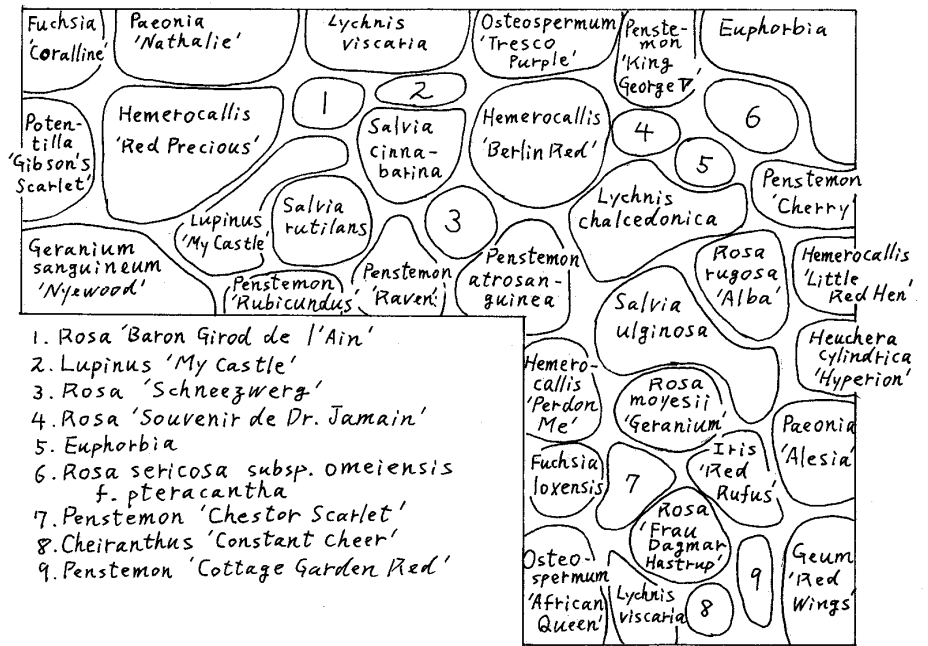 Fuchsia
'Coralline'
Paeonia
'Nathalie'
Lychnis
viscaria
Osteospermum
'Tresco
Purple'
Penste-
mon
'King
George V'
Euphorbia
Poten-
tilla
'Gibson's
Scarlet'
Hemerocallis
'Red Precious'
1
2
Salvia
cinna-
barina
Hemerocallis
'Berlin Red'
4
6
5
Penstemon
'Cherry'
Lupinus
'My Castle'
Salvia
rutilans
3
Lychnis
chalcedonica
Geranium
sanguineum
'Nyewood'
Penstemon
'Rubicundus'
Penstemon
'Raven'
Penstemon
atrosan-
guinea
Rosa
rugosa
'Alba'
Hemerocallis
'Little
Red Hen'
Salvia
ulginosa
Heuchera
cylindrica
'Hyperion'
Hemero-
callis
'Perdon
Me'
Rosa
moyesii
'Geranium'
Paeonia
'Alesia'
Fuchsia
loxensis
7
Iris
'Red
Rufus'
Rosa
'Frau
Dagmar
Hastrup'
Osteo-
spermum
'African
Queen'
Lychnis
viscaria
8
9
Geum
'Red
Wings'
1. Rosa 'Baron Girod de l'Ain'
2. Lupinus 'My Castle'
3. Rosa 'Schneezwerg'
4. Rosa 'Souvenir de Dr. Jamain'
5. Euphorbia
6. Rosa sericosa subsp. omeiensis
f. pteracantha
7. Penstemon 'Chestor Scarlet'
8. Cheiranthus 'Constant Cheer'
9. Penstemon 'Cottage Garden Red'